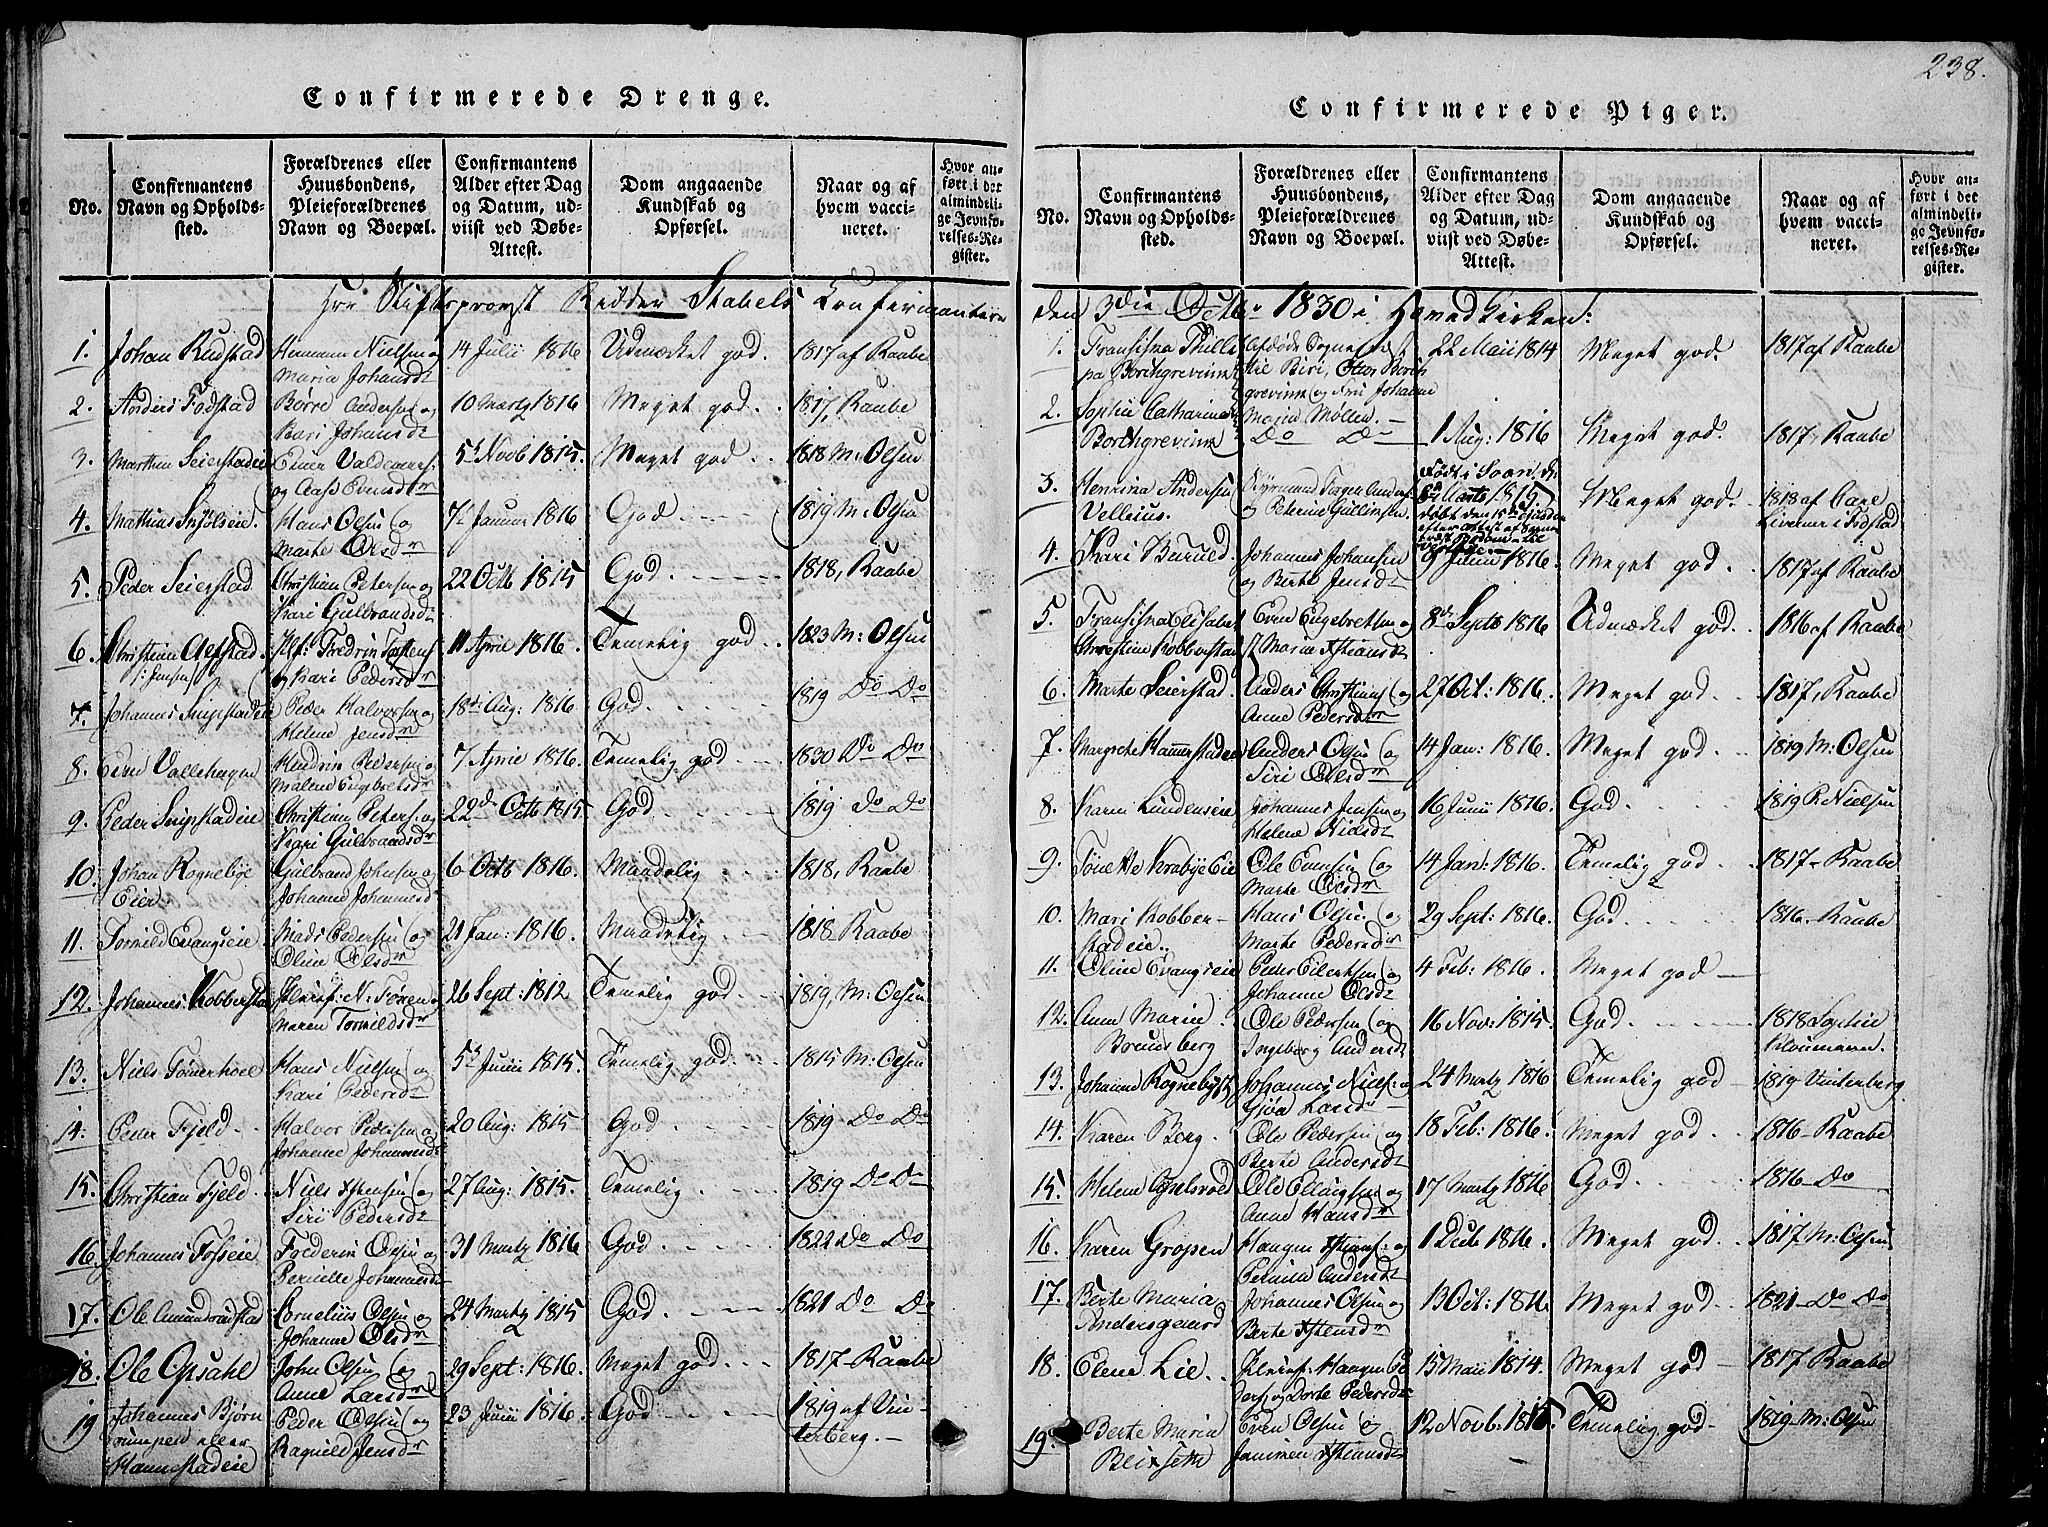 238.
Confirmerede Drenge.
No.
Confirmantens
Navn og Opholds-
sted.
Forældrenes eller
Huusbondens,
Pleieforældrenes
Navn og Boepæl.
Confirmantens
Alder efter Dag
og Datum, ud-
viist ved Døbe-
Attest.
Dom angaaende
Kundskab og
Opførsel.
Naar og af
hvem vacci-
neret.
Hvor an-
ført i det
almindeli-
ge Jevnfø-
relses-Re-
gister.
Hrr Stiftsprovst Ridder Stabels Konfirmantere
1. Johan Rudstad
Hemann Nielsen og
Maria Johansdr
14 Julii 1816
Udmærket god.
1817 af Raabe
2. Anders Fodstad
Børre Andersen og
Kari Johansdr
10 Martz 1816
Meget god.
1817, Raabe
3. Marthin Seierstadeie
Einer Valdemers:
og Aase Evensdr
5 Novb 1815
Meget god
1818 M: Olsen
4. Mathias
Hans Olsen og
Marte Olsdr
7 Januar 1816
God
1819 M: Olsen
5. Peder Seierstad
Christian Petersen og
Kari Gulbrandsd
22 Octb 1815
God
1818, Raabe
6. Christian Alfstad
/: Jensen
Fredrin
og Kari Pedersdr
11 April 1816
Temelig god
1823 M: Olsen
7. Johannes Snipstadeie
Peder Halvorsen og
Helene Jensdr
18 Aug: 1816
God
1819 Do Do
8. Even Vallehagen
Hendrin Pedersen og
Malene Engebretsdr
7 April 1816
Temelig god
1830 Do Do
9. Peder Snipstadeie
Christian Peters: og
Kari Gulbrandsdr
22d Octb 1815
God
1819 Do Do
10. Johan Rognebye
Eier.
Gulbrand Johnsen og
Johanne Johannesd
6 Octb 1816
Maadelig
1818, Raabe
11. Tormild Evangseie
Mads Pedersen og
Oline Olsdr
21 Jan: 1816.
Maadelig
1818 Raabe
12. Johannes Kobberstad
Pleief: N: Tøren og
Maren Tormildsdr
26 Sept: 1812
Temelig god
1819, M: Olsen
13. Niels Tømerhoel
Hans Nielsen og
Kari Pedersd
5 Junii 1815.
Temelig god.
1815 M: Olsen
14. Peder Fjeld
Halvor Pedersen og
Johanne Johannesd
20 Aug: 1815
God
1819 Do Do
15. Christian Fjeld
Niels Xstensen og
Siri Pedersdr
27 Aug: 1815.
Temelig
1819 Do Do
16. Johannes Fosseie
Frederin Olsen og
Pernille Johannesd
31 Martz 1816
God
1822 Do Do
17. Ole Amundrudstad
Cornelius Olsen og
Johanne Olsdr
24 Martz 1815
God
1821 Do Do
18. Ole Opsahl
John Olsen og
Anne Larsdr
29 Sept: 1816.
Meget god
1817 Raabe
19 Johannes Bjørn
rumpen eller
Hannestadeie
Peder Olsen og
Ragnild Jensdr
23 Junii 1816.
God
1819 af Vin-
terberg.
Confirmerede Piger.
No.
Confirmantens
Navn og Opholds-
sted.
Forældrenes eller
Huusbondens,
Pleieforældrenes
Navn og Boepæl.
Confirmantens
Alder efter Dag
og Datum, ud-
viist ved Døbe-
Attest.
Dom angaaende
Kundskab og
Opførsel.
Naar og af
hvem vacci-
neret.
Hvor an-
ført i det
almindeli-
ge Jevnfø-
relses-Re-
gister.
den 3die Octbr 1830 i Hovedkirken:
1. Fransisna Phillip
pa Borchgrevink
Afdøde Sognepræst
til Biri, Otto Borch
grevink og Fru Johanne
Maria Møller.
22 Maii 1814
Meget god.
1817 af Raabe
2. Sophie Catharina
Borchgrevink
Do Do
1 Aug: 1816
Meget god.
1817, Raabe
3. Henrina Andersen
Velleius.
og Petrine Gullinsen.
Født i
Marts 1815
døbt den 15
efter Attest af
Meget god
1818 af Care
i Fodstad
4. Kari Barud
Johannes Johansen
og Berte Jensdr
9 Junii 1816.
Meget god
1817 af Raabe
5. Fransisna Elisabet
Christine Kobberstad
Even Engebretsen og
Marie Xstiansd
8 Septb 1816
Udmærket god
1816 af Raabe
6. Marte Seierstad.
Anders Christians: og
Anne Pedersdr
27 Oct: 1816.
Meget god
1817, Raabe
7. Margrethe Hammerstadeie
Anders Olsen og
Siri Olsdr
14 Jan: 1816.
Meget god
1819 M: Olsen
8. Karen Lundenseie
Johannes Jensen og
Helene Nielsdr
16 Junii 1816.
God.
1819 P. Nielsen
9. Tonette Krabye Eie
Ole Evensen og
Marte Olsdr
14 Jan: 1816.
Temelig god
1817 Raabe
10. Mari Kobber-
stadeie.
Hans Olsen og
Marte Pedersdr
29 Sept: 1816.
God
1816 Raabe
11. Oline Evangseie
Peder Eilertsen og
Johanne Olsdr
4 Feb: 1816.
Meget god
12. Anne Marie
Braunsberg
Ole Pedersen og
Ingeborg Andersdr
16 Nov: 1815.
God.
1818 Sophie
Kloumann.
13. Johanne Rognebye
Johannes Niels: og
Gjøa Larsdr
24 Martz 1816
Temelig god
1819 Vinterberg
14. Karen Berg.
Ole Pedersen og
Berte Andersdr
18 Feb: 1816.
Meget god
1816 Raabe
15. Helene Gjelsvold
Ole Ellingsen og
Anne Hansdr
17 Martz 1816
God
1816 Do
16. Karen Grossen
Haagen Xstians: og
Pernille Andersdr
1 Decb 1816.
Meget god
1817 M: Olsen
17. Berte Maria
Andersgaard
Johannes Olsen og
Berte Xstensdr
13 Oct: 1816
Meget god
1821 Do Do
18. Elene Lie
Pleief: Haagen Pe
ders: og Dorte Pedersd
15 Maii 1814.
Meget god
1817 Raabe
19. Berte Maria
Beixsette
Even Olsen og
Xstiansd
12 Novb. 1815
Temelig god
1819 M: Olsen